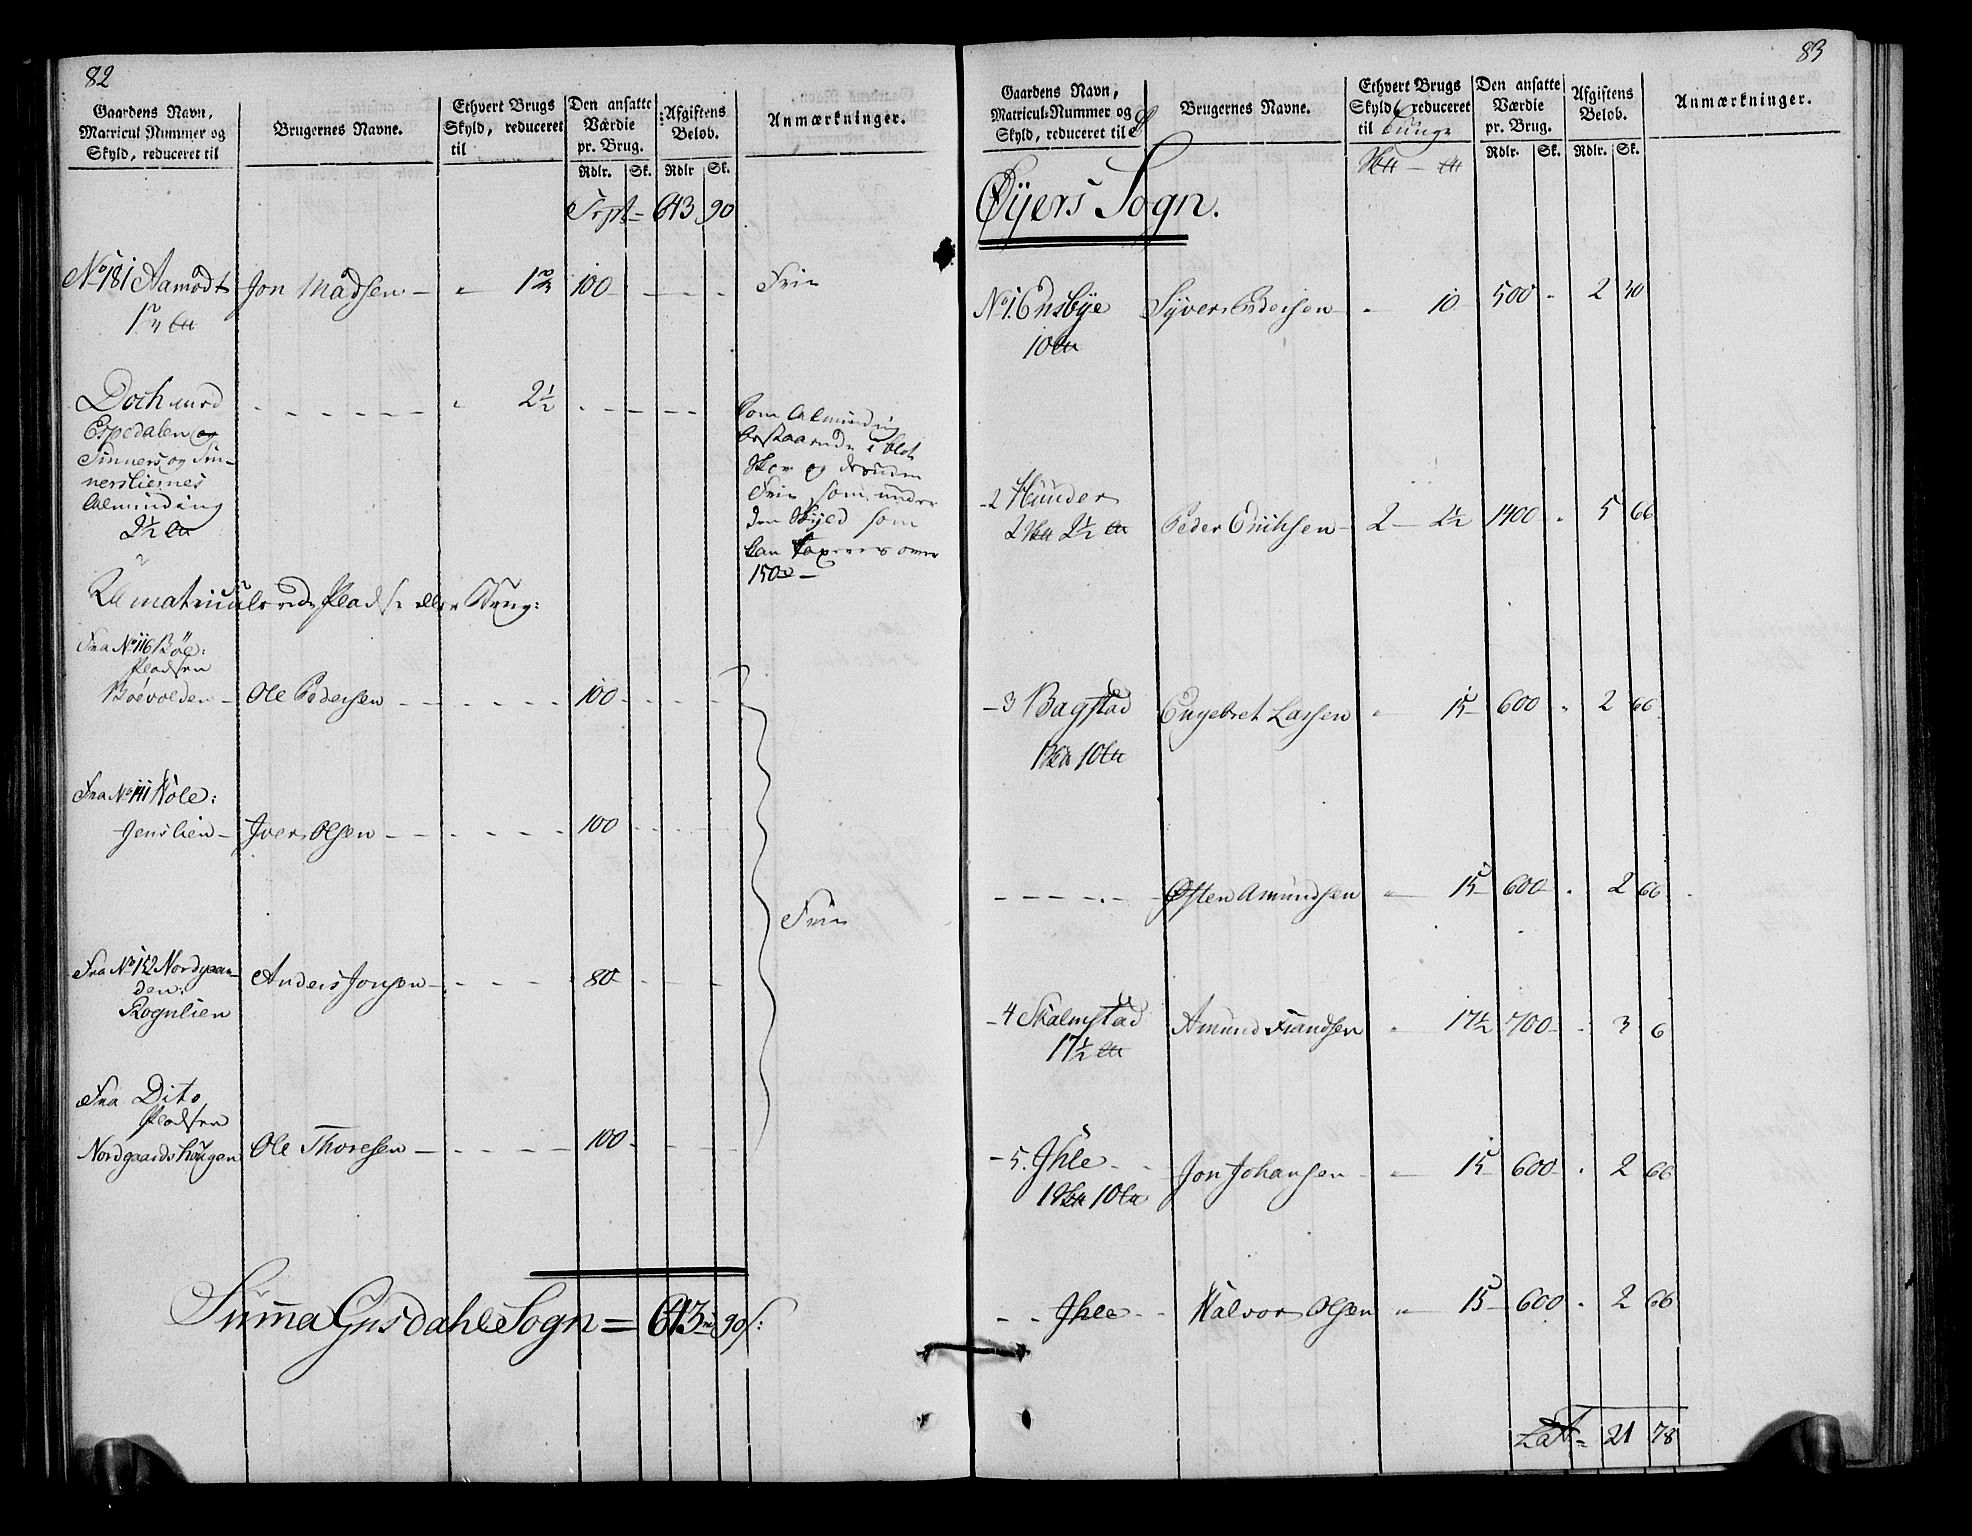 82
Gaardens Navn, Matricul-Nummer og Skyld, reduceret til
Brugernes Navne.
Ethvert Brugs Skyld, reduceret til
Den ansatte Værdie pr. Brug.
Afgiftens Beløb.
Anmærkninger.
Rdlr. Sk. Rdlr Sk.
Trpt = 613 90
No 181 Aamodt Jon Madsen - " 1 2/3 100 - - - Frie
Doch med - - - - - " 2 1/2 - - - - Som Alminding
Espedalen og
Tinners og Tin-
nersliernes
Alminding
2 1/2
bestaaende i blot
Skov og desuden
Frie som under
den Skyld som
kan taxeres over
150
Umatriculerede Pladse eller Brug:
Fra No 116 Böe:
Pladsen
Böevolden - Ole Pedersen - - - - 100 - - -
Fra No 141 Hole:
Jenslien - Iver Olsen - - - - 100 - - -
Frie
Fra No 152 Nordgaar-
den:
Rognlien Anders Jonsen - - - - 80 - - -
Fra Dito
Pladsen
Nordgaardshougen Ole Thoresen - - - - 100 - - -
Summa Gusdahls Sogn = 613 90 s:
83
Gaardens Navn, Matricul-Nummer og Skyld, reduceret til
Brugernes Navne.
Ethvert Brugs Skyld, reduceret til Tunge
Den ansatte Værdie pr. Brug.
Afgiftens Beløb.
Anmærkninger.
Rdlr. Sk. Rdlr. Sk.
Øyers Sogn.
No 1. Ensbye Syver Pedersen - " 10 500 " 2 30
10
- 2 Hunder
2 2 1/2 Peder Erichsen - 2 - 2 1/2 1400 " 5 66
- 3 Bagstad Engebret Larsen " 15 600 " 2 66
1 10
- - - - - Østen Amundsen " 15 600 " 2 66
- 4 Skalmstad Amund Frandsen " 17 1/2 700 - 3 6
17 1/2
- 5. Ihle - - Jon Johansen - " 15 600 " 2 66
1 10
- - Ihle - - Halvor Olsen " 15 600 " 2 66
Lat = 21 78